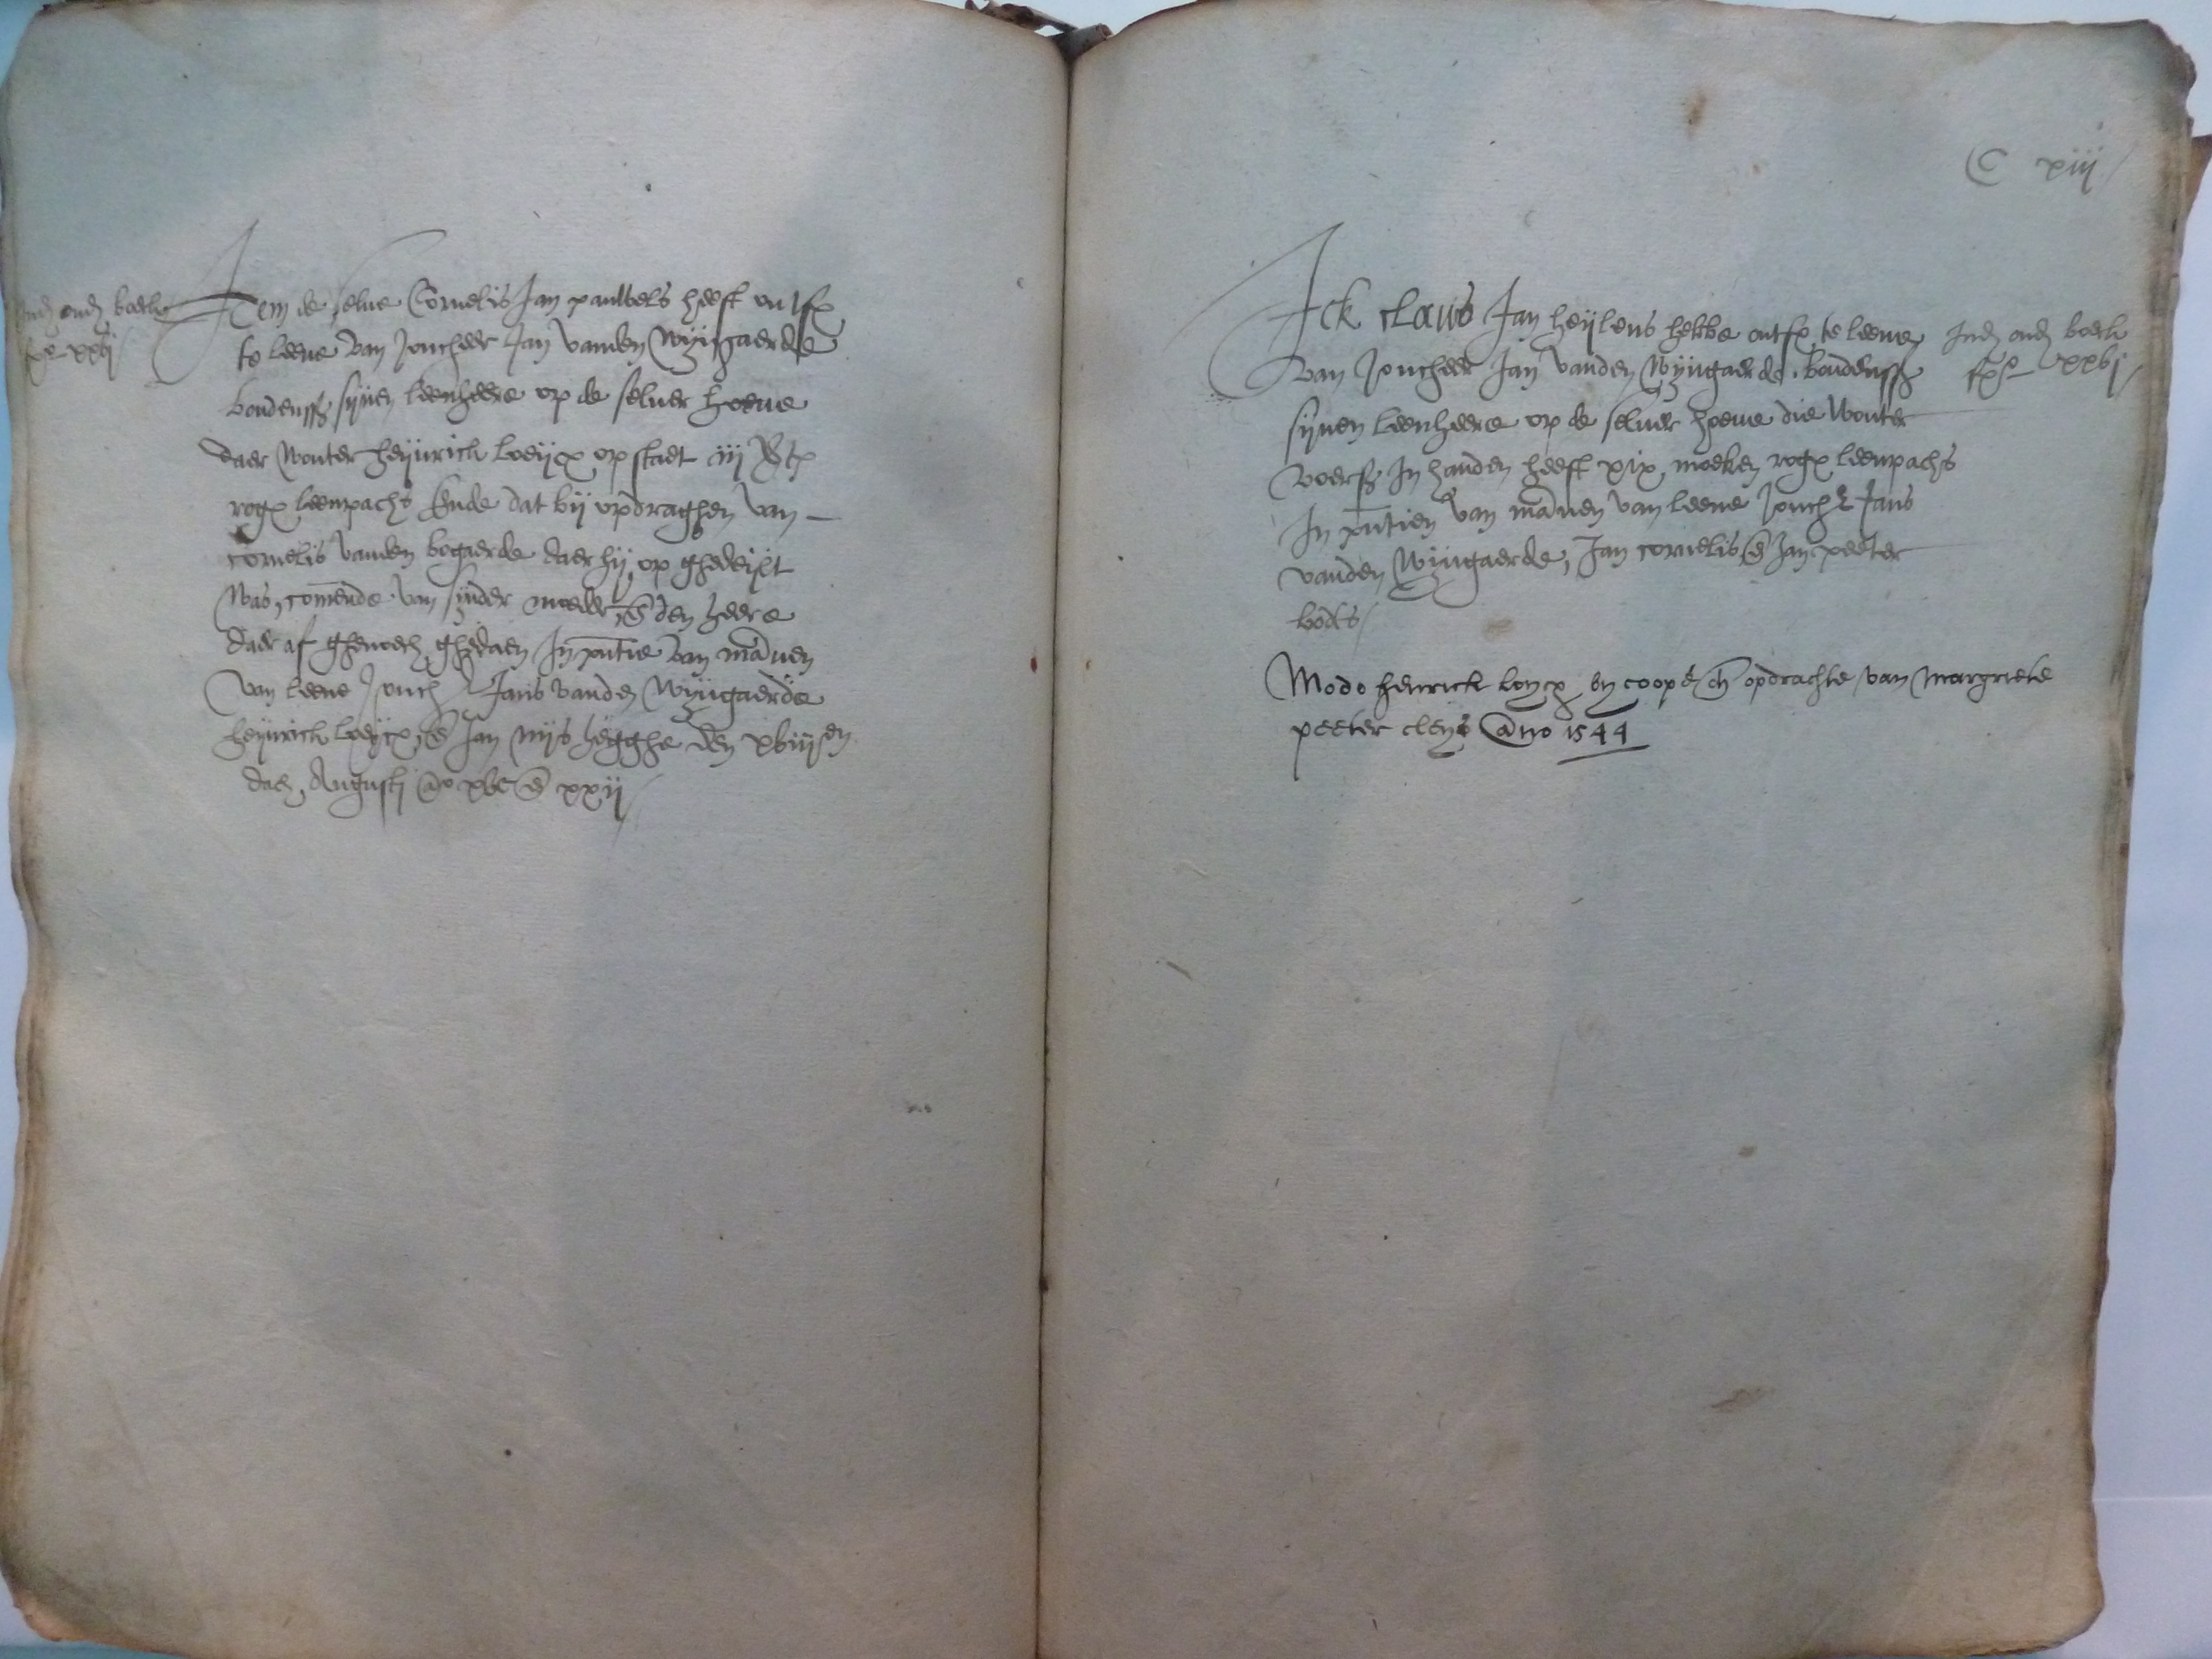 Ind oud boeck
fo xxvj
Item de selve Cornelis Jan pauwels heeft ontf
te leene van Joncheer Jan vanden Wijngaerde
boudenss sijnen leenheere op de selver hoeve
daer wouter heijnrick loeijx op staet iiij
rogx leenpachs Ende dat bij opdraghen van
cornelis vanden bogaerde daer hij op ghedeijlt
was, comende van sijnder moeder, en den heere
daer af ghenoech ghedaen In pntie van mannen
van leene Jonch Jans vanden Wijngaerde
heijnrick loeijcx, en Jan nijs hegghe den xviijen
dach Augusti ao xvc en xxij
C xiij
Ick claus Jan heijlens hebbe ontf te leene
van Joncheer Jan vanden Wijngaerde boudenss
sijnen leenheere op de selver hoeve die wouter
voers In handen heeft xix moeken rogx leenpachs
In pntien van mannen van leene Jonchr Jans
vanden Wijngaerde, Jan cornelis en Jan peeter
bods
Ind oud boeck
fo xxvj
Modo henrick loycx by coope en opdrachte van margriete
peeter cleys Ano 1544